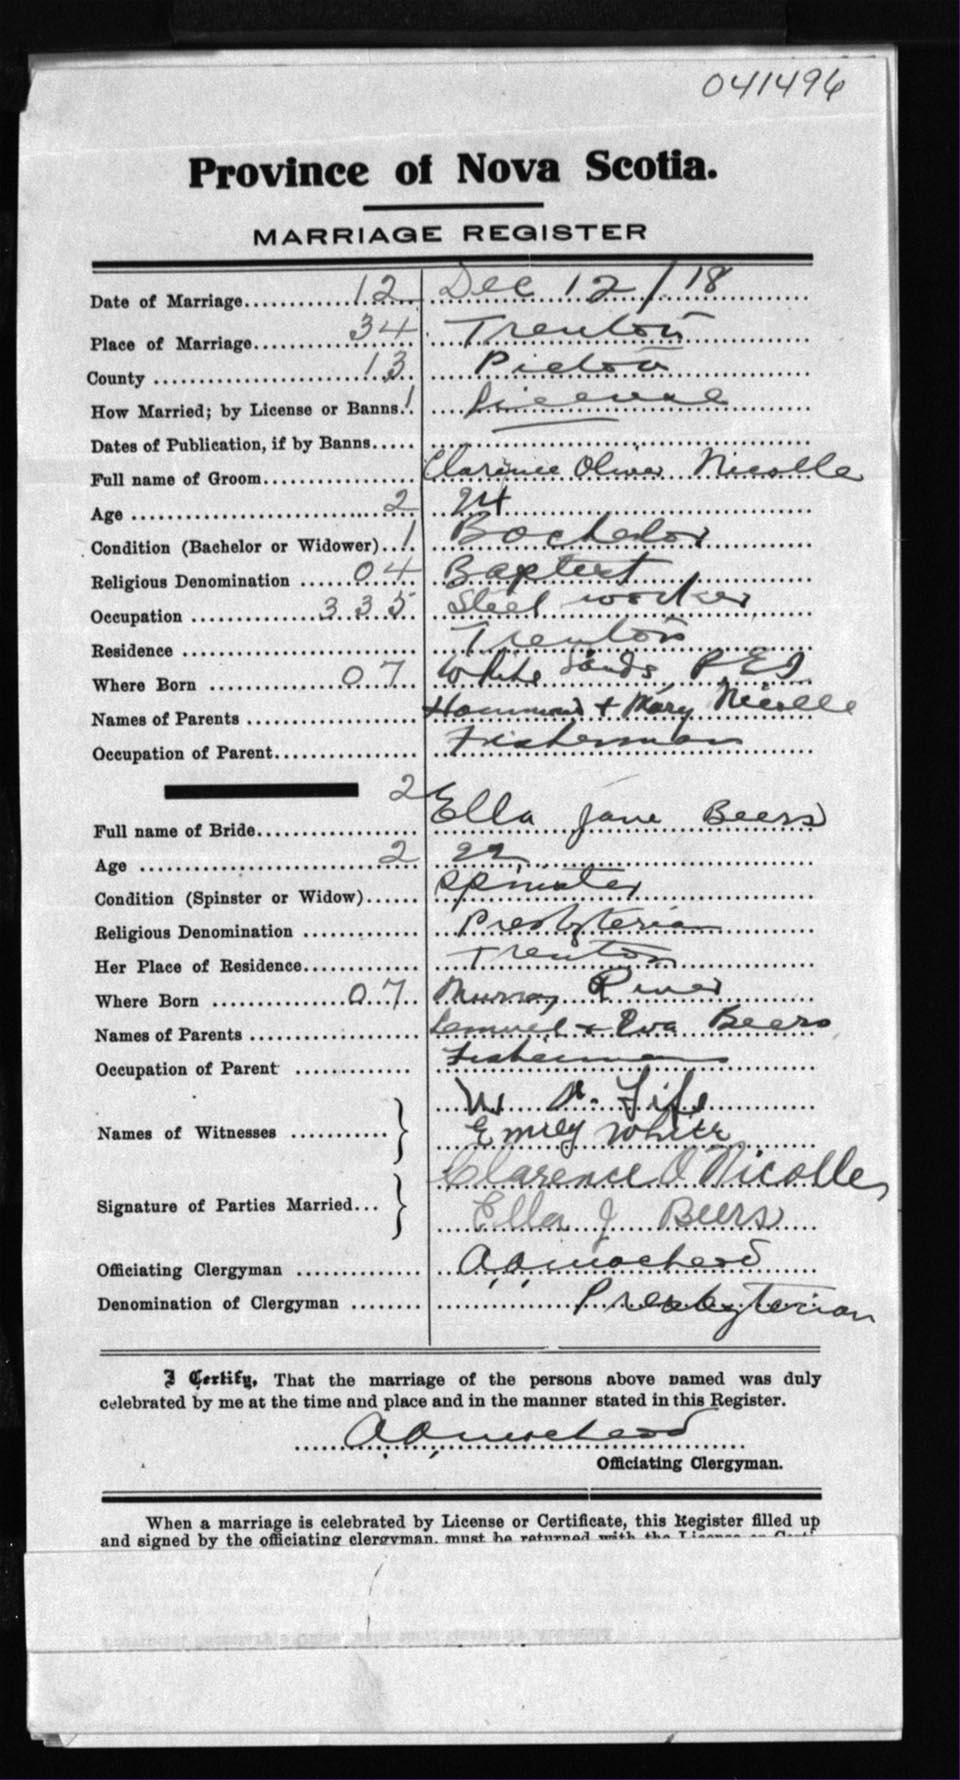 041496
Province of Nova Scotia.
MARRIAGE REGISTER
Date of Marriage............12 Dec 12/18
Place of Marriage............34 Trenton
County ............13 Pictou
How Married; by License or Banns. 1 License
Dates of Publication, if by Banns.....
Full name of Groom............ Clarence Oliver Nicolle
Age ............2 24
Condition (Bachelor or Widower)...1 Bachelor
Religious Denomination ......04 Baptist
Occupation ............335 Steel worker
Residence ............ Trenton
Where Born ............07 White Sands, P E I
Names of Parents ............ & Mary Nicolle
Occupation of Parent............ Fisherman
2
Full name of Bride............ Ella Jane Beers
Age ............2 22
Condition (Spinster or Widow)...... Spinster
Religious Denomination ............ Presbyterian
Her Place of Residence............ Trenton
Where Born ............07 Murray River
Names of Parents ............ Lemuel & Eva Beers
Occupation of Parent ............ Fisherman
W. Fife
Names of Witnesses ............} Emily White
Clarence O Nicolle
Signature of Parties Married...}
Ella J Beers
Officiating Clergyman ............
Denomination of Clergyman ........ Presbyterian
I Certify, That the marriage of the persons above named was duly
celebrated by me at the time and place and in the manner stated in this Register.
Officiating Clergyman.
When a marriage is celebrated by License or Certificate, this Register filled up
and signed by the officiating clergyman, must be returned with the License or Certi-